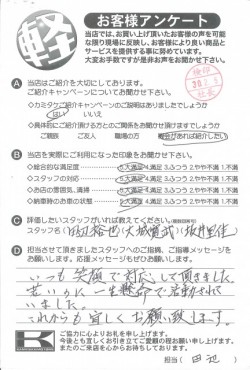 軽
お客様アンケート
当店では、お買い上げ頂いたお客様の声を可能
な限り現場に反映し、お客様により良い商品と
サービスを提供する事に努めています。
大変お手数ですが是非お声をお聞かせ下さい。
A 当店はご紹介を大切にしております。
ご紹介キャンペーンについてお聞かせ下さい。
◇カミタケご紹介キャンペーンのご説明はありましたでしょうか
はい いいえ
◇具体的にご紹介頂ける方とのご関係をお聞かせ頂けますでしょうか
ご親族 ご友人 職場の方 機会があれば紹介したい
B 当店を実際にご利用になった印象をお聞かせ下さい。
◇総合的な満足度 5.大満足 4.満足 3.ふつう 2.やや不満 1.不満
◇スタッフの対応 5.大満足 4.満足 3.ふつう 2.やや不満 1.不満
◇お店の雰囲気、清掃 5.大満足 4.満足 3.ふつう 2.やや不満 1.不満
◇納車時のお車の状態 5.大満足 4.満足 3.ふつう 2.やや不満 1.不満
C 評価したいスタッフがいれば教えてください。
スタッフ名
D 担当させて頂きましたスタッフへのご指摘、ご指導メッセージを
お願いします。応援メッセージもぜひお願いします。
いつも笑顔で対応して頂きました。
若いのに一生懸命で感動されて
いました。
これからも宜しくお願い致します。
K
ご協力に心よりお礼を申し上げます。
今後とも宜しくお引き立てご愛顧の程お願い申し上げます。
またのご来店を心からお待ちしております。
担当( 田辺 )